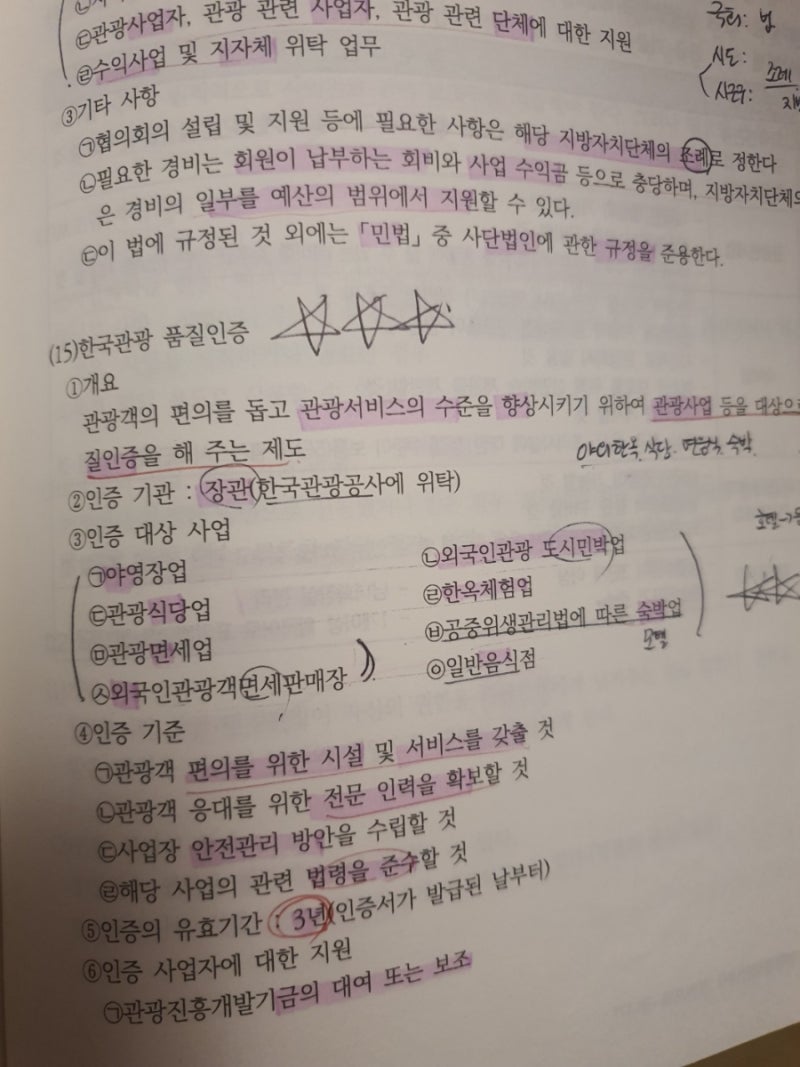 ㉢관광사업자, 관광 관련 사업자, 관광 관련 단체에 대한 지원
㉣수익사업 및 지자체 위탁 업무
국회: 법
시도:
시군구:
조례
③기타 사항
㉠협의회의 설립 및 지원 등에 필요한 사항은 해당 지방자치단체의 조례로 정한다
㉡필요한 경비는 회원이 납부하는 회비와 사업 수익금 등으로 충당하며, 지방자치단체의
은 경비의 일부를 예산의 범위에서 지원할 수 있다.
㉢이 법에 규정된 것 외에는 「민법」 중 사단법인에 관한 규정을 준용한다.
(15)한국관광 품질인증
①개요
관광객의 편의를 돕고 관광서비스의 수준을 향상시키기 위하여 관광사업 등을 대상으로
질인증을 해 주는 제도
야외한옥, 식당. 면음식, 숙박.
②인증 기관 : 장관(한국관광공사에 위탁)
③인증 대상 사업
㉠야영장업
㉡외국인관광 도시민박업
㉢관광식당업
㉣한옥체험업
㉤관광면세업
㉥공중위생관리법에 따른 숙박업
모텔
㉦외국인관광객면세판매장
㉧일반음식점
④인증 기준
㉠관광객 편의를 위한 시설 및 서비스를 갖출 것
㉡관광객 응대를 위한 전문 인력을 확보할 것
㉢사업장 안전관리 방안을 수립할 것
㉣해당 사업의 관련 법령을 준수할 것
⑤인증의 유효기간 : 3년(인증서가 발급된 날부터)
⑥인증 사업자에 대한 지원
㉠관광진흥개발기금의 대여 또는 보조